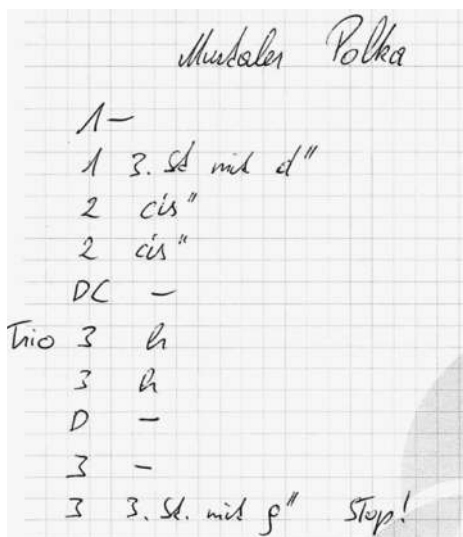 Murtaler Polka
1 -
1 3. St mit d"
2 cis"
2 cis"
DC -
Trio 3 h
3 h
D -
3 -
3 3. St. mit g" Stop!